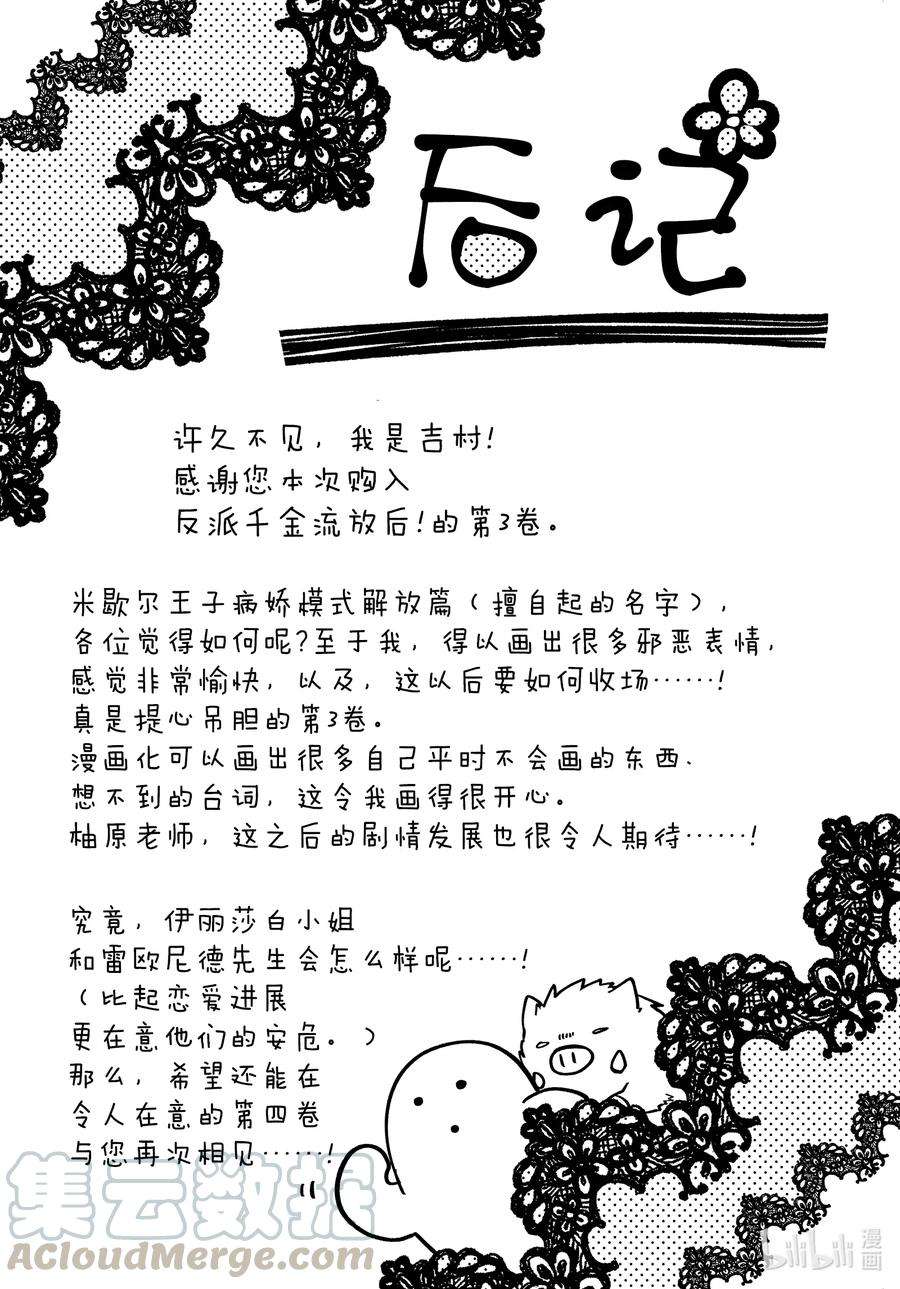 后记
许久不见，我是吉村！
感谢您本次购入
反派千金流放后！的第3卷。
米歇尔王子病娇模式解放篇（擅自起的名字），
各位觉得如何呢？至于我，得以画出很多邪恶表情，
感觉非常愉快，以及，这以后要如何收场……！
真是提心吊胆的第3卷。
漫画化可以画出很多自己平时不会画的东西、
想不到的台词，这令我画得很开心。
柚原老师，这之后的剧情发展也很令人期待……！
究竟，伊丽莎白小姐
和雷欧尼德先生会怎么样呢……！
（比起恋爱进展
更在意他们的安危。）
那么，希望还能在
令人在意的第四卷
与您再次相见……！
集云数据
ACloudMerge.com
bilibili 漫画